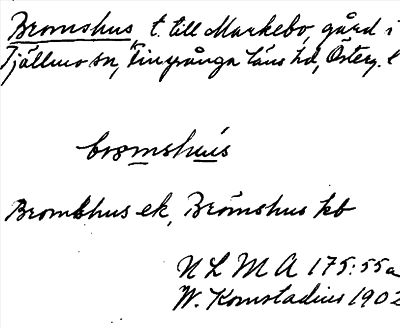 Bromshus, t. till Markebo, gård i
Tjällmo sn, Finspånga läns hd, Österg. l
bromshus
Bromshus ek, Bromshus kb
N L M A 175:55a
W. Komstadius 1902